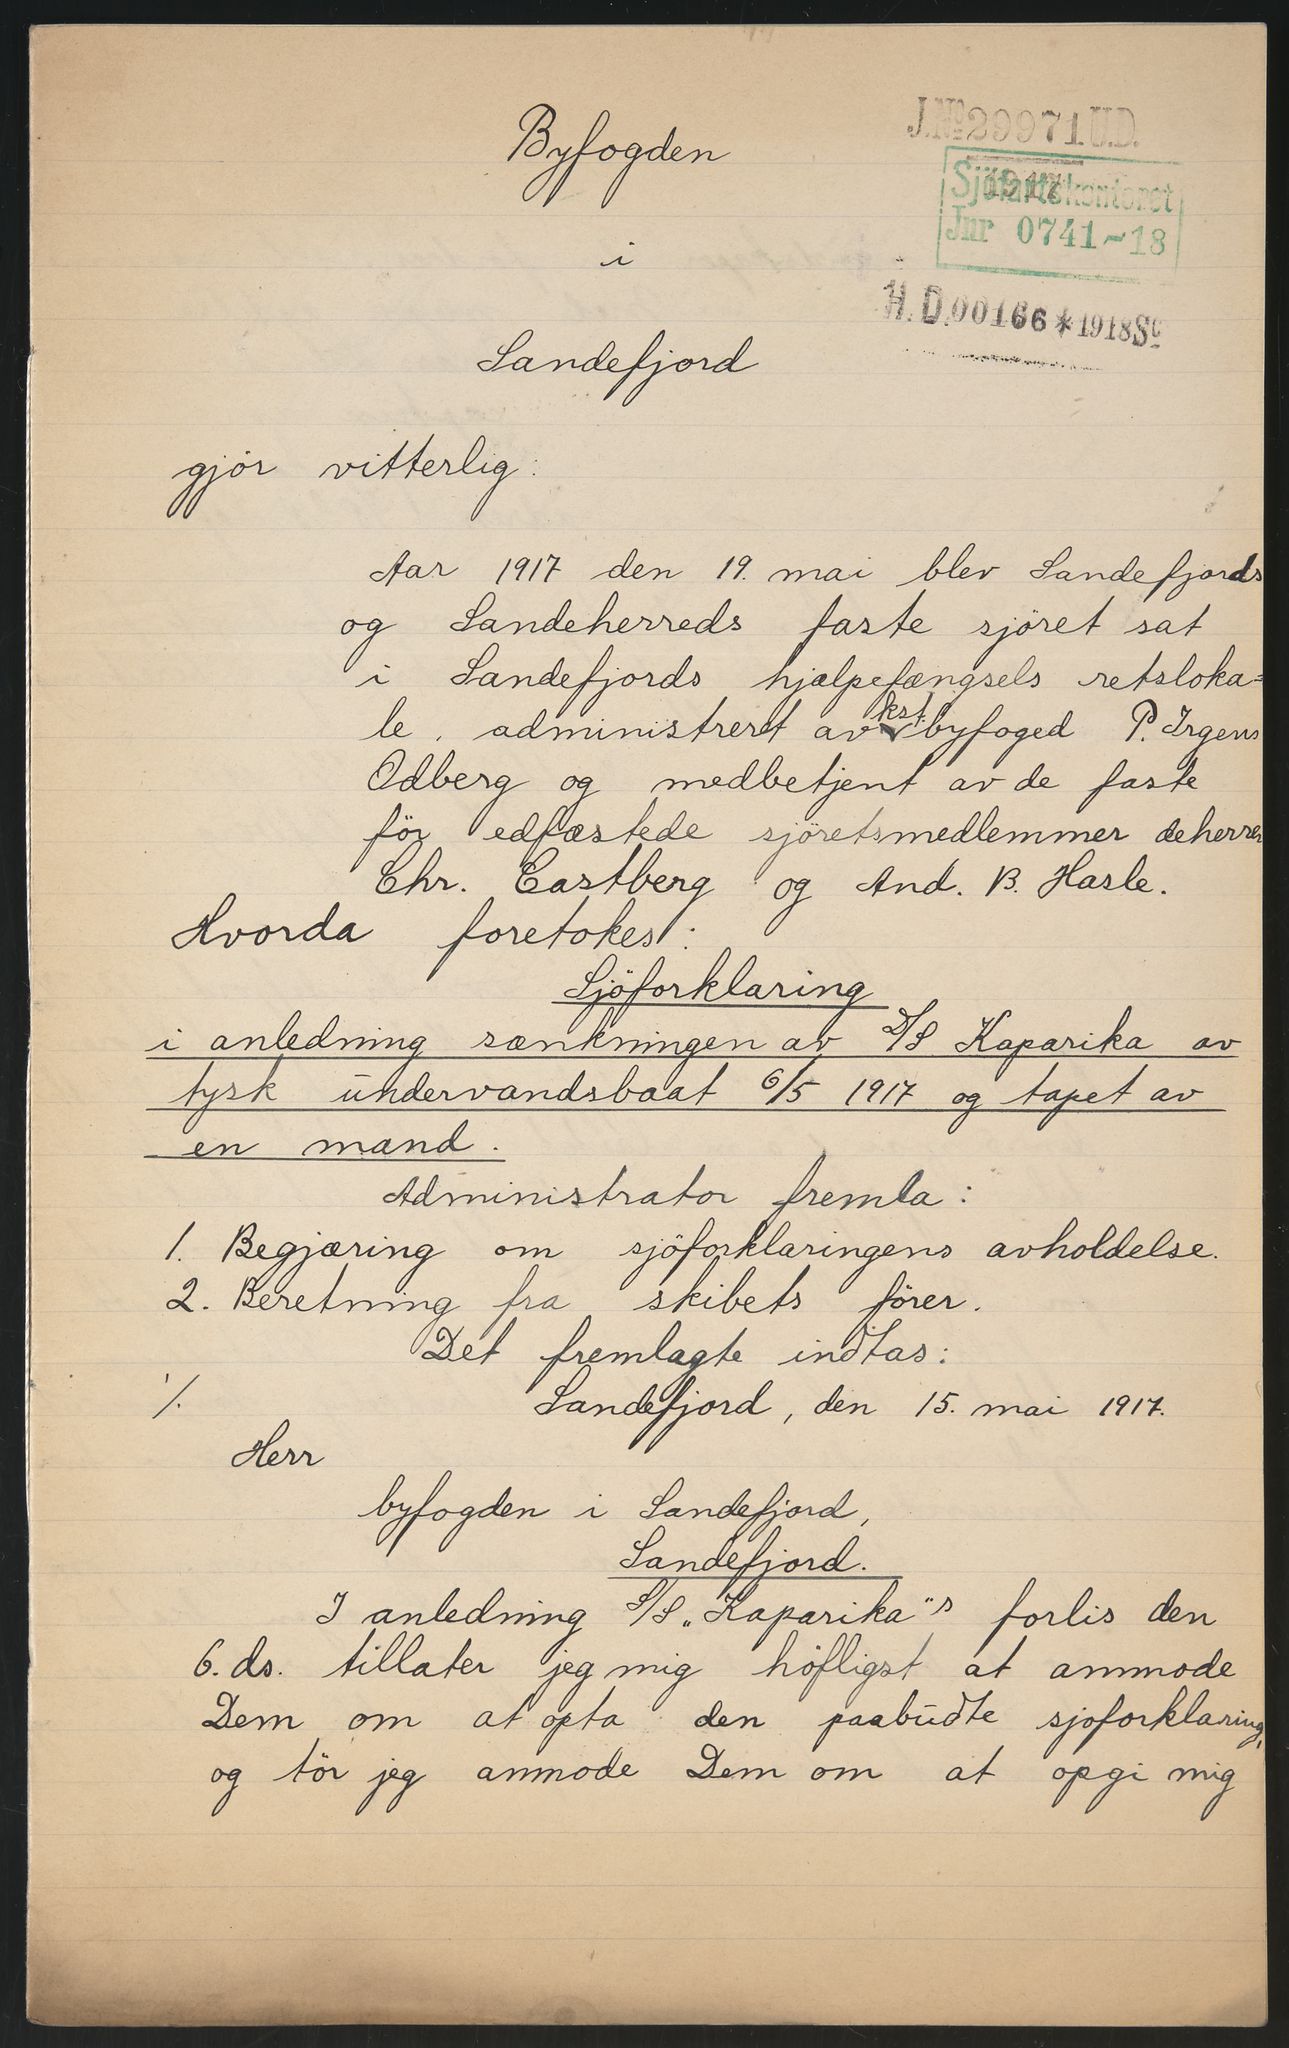 Byfogden
J.No 29971 U.D.
1917
Sjöfartskontoret
Jnr 0741-18
i
H.D. 00166 * 1918 Sc
Sandefjord
gjör vitterlig:
Aar 1917 den 19. mai blev Sandefjords
og Sandeherreds faste sjöret sat
i Sandefjords hjælpefængsels retsloka=
le, administrert av kst. byfoged P. Irgens
Odberg og medbetjent av de faste
för edfæstede sjöretsmedlemmer deherrer
Chr. Castberg og And. B. Hasle.
Hvorda foretokes:
Sjöforklaring
i anledning sænkningen av D/S Kaparika av
tysk undervandsbaat 6/5 1917 og tapet av
en mand.
Administrator fremla:
1. Begjæring om sjöforklaringens avholdelse.
2. Beretning fra skibets förer.
Det fremlagte indtas:
1/. Sandefjord, den 15. mai 1917.
Herr
byfogden i Sandefjord,
Sandefjord.
I anledning S/S „Kaparika"s forlis den
6. ds. tillater jeg mig höfligst at anmode
Dem om at opta den paabudte sjoforklaring,
og tör jeg anmode Dem om at opgi mig